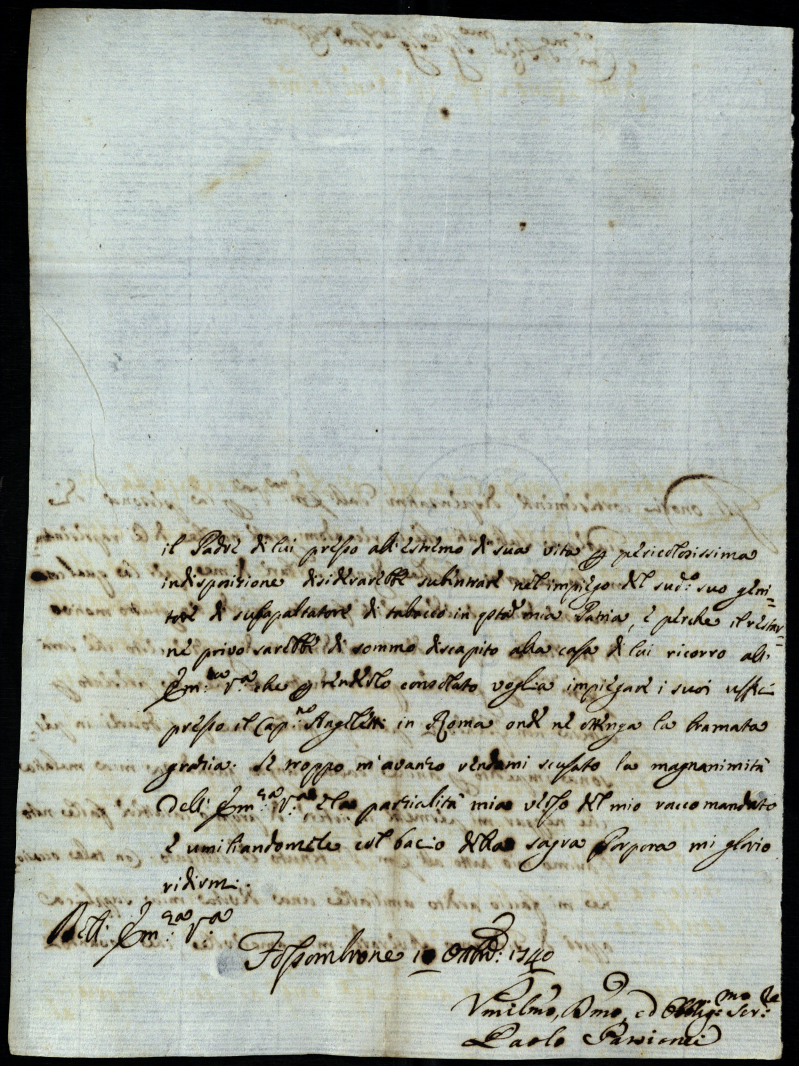 il Padre di lui presso all'estremo di sua vita p pericolosissima
indisposizione disiderarebbe subintrare nel impiego del sud.º suo geni=
tore di subapaltatore di tabacco in qsta mia Patria, e perche il restar=
ne privo sarebbe di sommo discapito alla casa di lui ricorro all'
Em.za V.ra che p renderlo consolato voglia impiegare i suoi uffici
presso il Cap.no in Roma onde ne ottenga la bramata
grazia. Se troppo m'avanzo rendami scusato la magnanimità
dell' Em.za V.ra e la parzialità mia verso del mio raccomandato
e umiliandomele col bacio della sagra Porpora mi glorio
ridirmi.
Dell' Em.za V.ra
Fossombrone 10 Ottbre: 1740
Vmilmo, Dmo, ed Obblig.mo Ser.re
Paolo